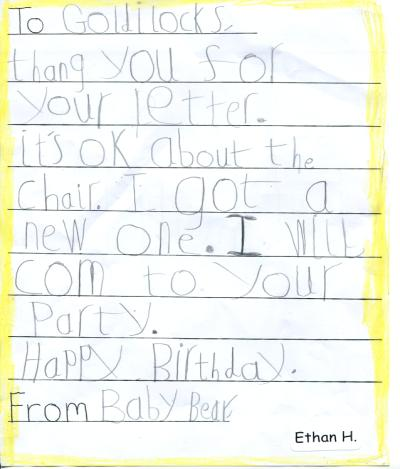 To Goldilocks,
thang you for
your letter.
it's ok about the
chair. I got a
new one. I will
com to your
Party.
Happy Birthday.
From Baby Bear
Ethan H.